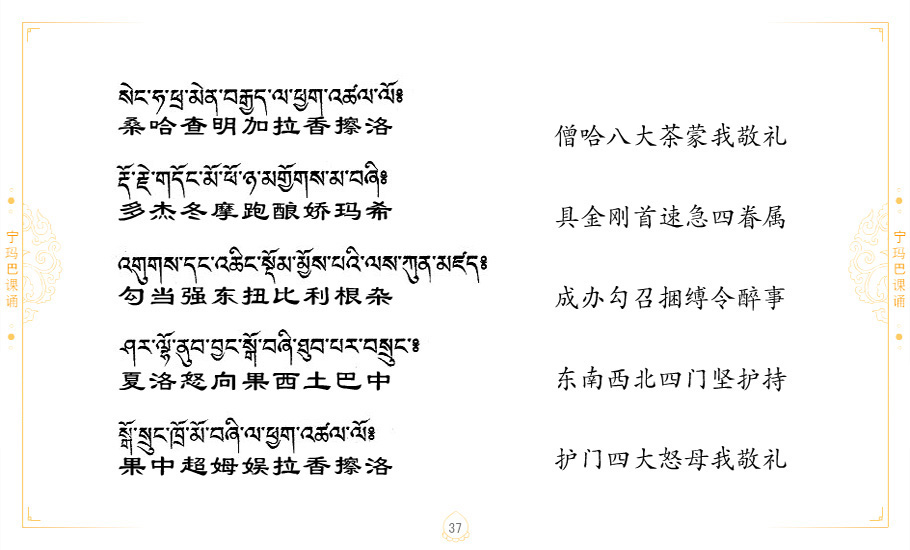 སེང་ཧ་ཕྲ་མེན་བརྒྱད་ལ་ཕྱག་འཚལ་ལོ༔
桑哈查明加拉香擦洛
僧哈八大茶蒙我敬礼
རྡོ་རྗེ་གདོང་མོ་ཕོ་ཉ་མགྱོགས་མ་བཞི༔
多杰冬摩跑酿娇玛希
具金刚首速急四眷属
འགུགས་དང་འཆིང་སྡོམ་མྱོས་པའི་ལས་ཀུན་མཛད༔
勾当强东扭比利根杂
成办勾召捆缚令醉事
ཤར་ལྷོ་ནུབ་བྱང་སྒོ་བཞི་ཐུབ་པར་བསྲུང་༔
夏洛怒向果西土巴中
东南西北四门坚护持
སྒོ་སྲུང་ཁྲོ་མོ་བཞི་ལ་ཕྱག་འཚལ་ལོ༔
果中超姆娱拉香擦洛
护门四大怒母我敬礼
宁玛巴课诵
宁玛巴课诵
37